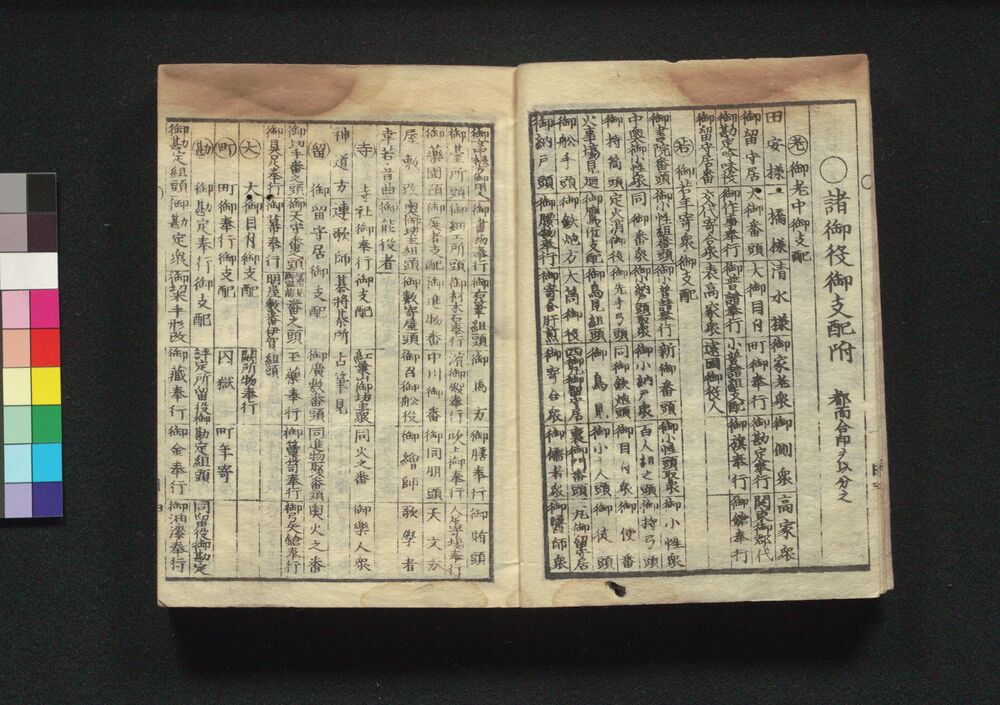 ○諸御役御支配附 都而合印ヲ以分之
老 御老中御支配
田安様 一橋様 清水様御家老衆 御側衆 高家衆
御留守居 大御番頭 大御目付 町御奉行 御勘定奉行 関東御郡代
御勘定吟味役 御作事奉行 御普請奉行 小普請組支配 御旗奉行 御鎗奉行
御留守居番 交代寄合衆 表高家衆 遠国御役人
若 御若年寄衆御支配
御書院番頭 御小性組番頭 御普請奉行 新御番頭 御小性頭取衆 御小性衆
中奥御小性衆 同御番衆 御小納戸頭取衆 御小納戸衆 百人組之頭 御持弓頭
御持筒頭 定火消御役 御先手弓頭 同御鉄炮頭 御目付衆 御使番
火事場見廻 御鷹匠支配 御鳥見組頭 御鳥見 御小人頭 御徒頭
御舩手頭 御鉄炮方 大筒御役 西御丸御留守居 裏御門番頭 二丸御留守居
御納戸頭 御腰物奉行 御寄合肝煎 御寄合衆 御儒者衆 御醫師衆
御書物奉行 御右筆組頭 御馬方 御膳奉行 御賄頭
御臺所頭 御細工所頭 御材木石奉行 濱御殿奉行 吹上御奉行 人足寄場奉行
御藥園預 御鹿者支配 御進物番 中川御番 御同朋頭 天文方
屋敷改 奥御坊主組頭 御数寄屋頭 御召御舩役 御繪師 歌學者
幸若音曲 御能役者
寺 寺社御奉行御支配 紅葉山御坊主衆 同火之番 御樂人衆
神道方 連歌師 碁將棊所 占筆見
留 御留守居御支配 御廣敷番頭 同進物取次番頭 奥火之番
御切手番之頭 御天守番頭 番之頭 玉藥奉行 御具足奉行 御弓矢鎗奉行
御具足奉行 御幕奉行 明屋敷番伊賀組頭
大 大御目付御支配 闕所物奉行
町 町御奉行御支配 囚獄 町年寄
勘 御勘定奉行御支配 評定所留役御勘定組頭 同留役御勘定
御勘定組頭 御勘定衆 御切米手形改 御藏奉行 御金奉行 御油漆奉行